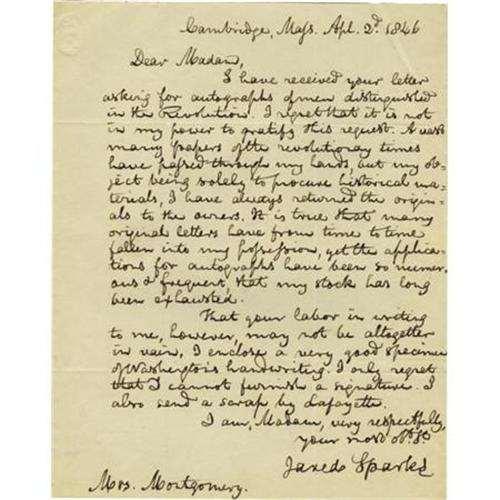 Cambridge, Mass. Apl. 2d. 1846
Dear Madam,
I have received your letter
asking for autographs of men distinguished
in the Revolution. I regret that it is not
in my power to gratify this request. A vast
many papers of the revolutionary times
have passed through my hands, but my ob-
ject being solely to procure historical ma-
terials, I have always returned the origin-
als to the owners. It is true that many
original letters have from time to time
fallen into my possession, yet the applica-
tions for autographs have been so numer-
ous & frequent, that my stock has long
been exhausted.
That your labor in writing
to me, however, may not be altogether
in vain, I enclose a very good specimen
of Washington's handwriting. I only regret
that I cannot furnish a signature. I
also send a scrap by Lafayette.
I am, Madam, very respectfully,
your most obt. St.
Jared Sparks
Mrs. Montgomery.